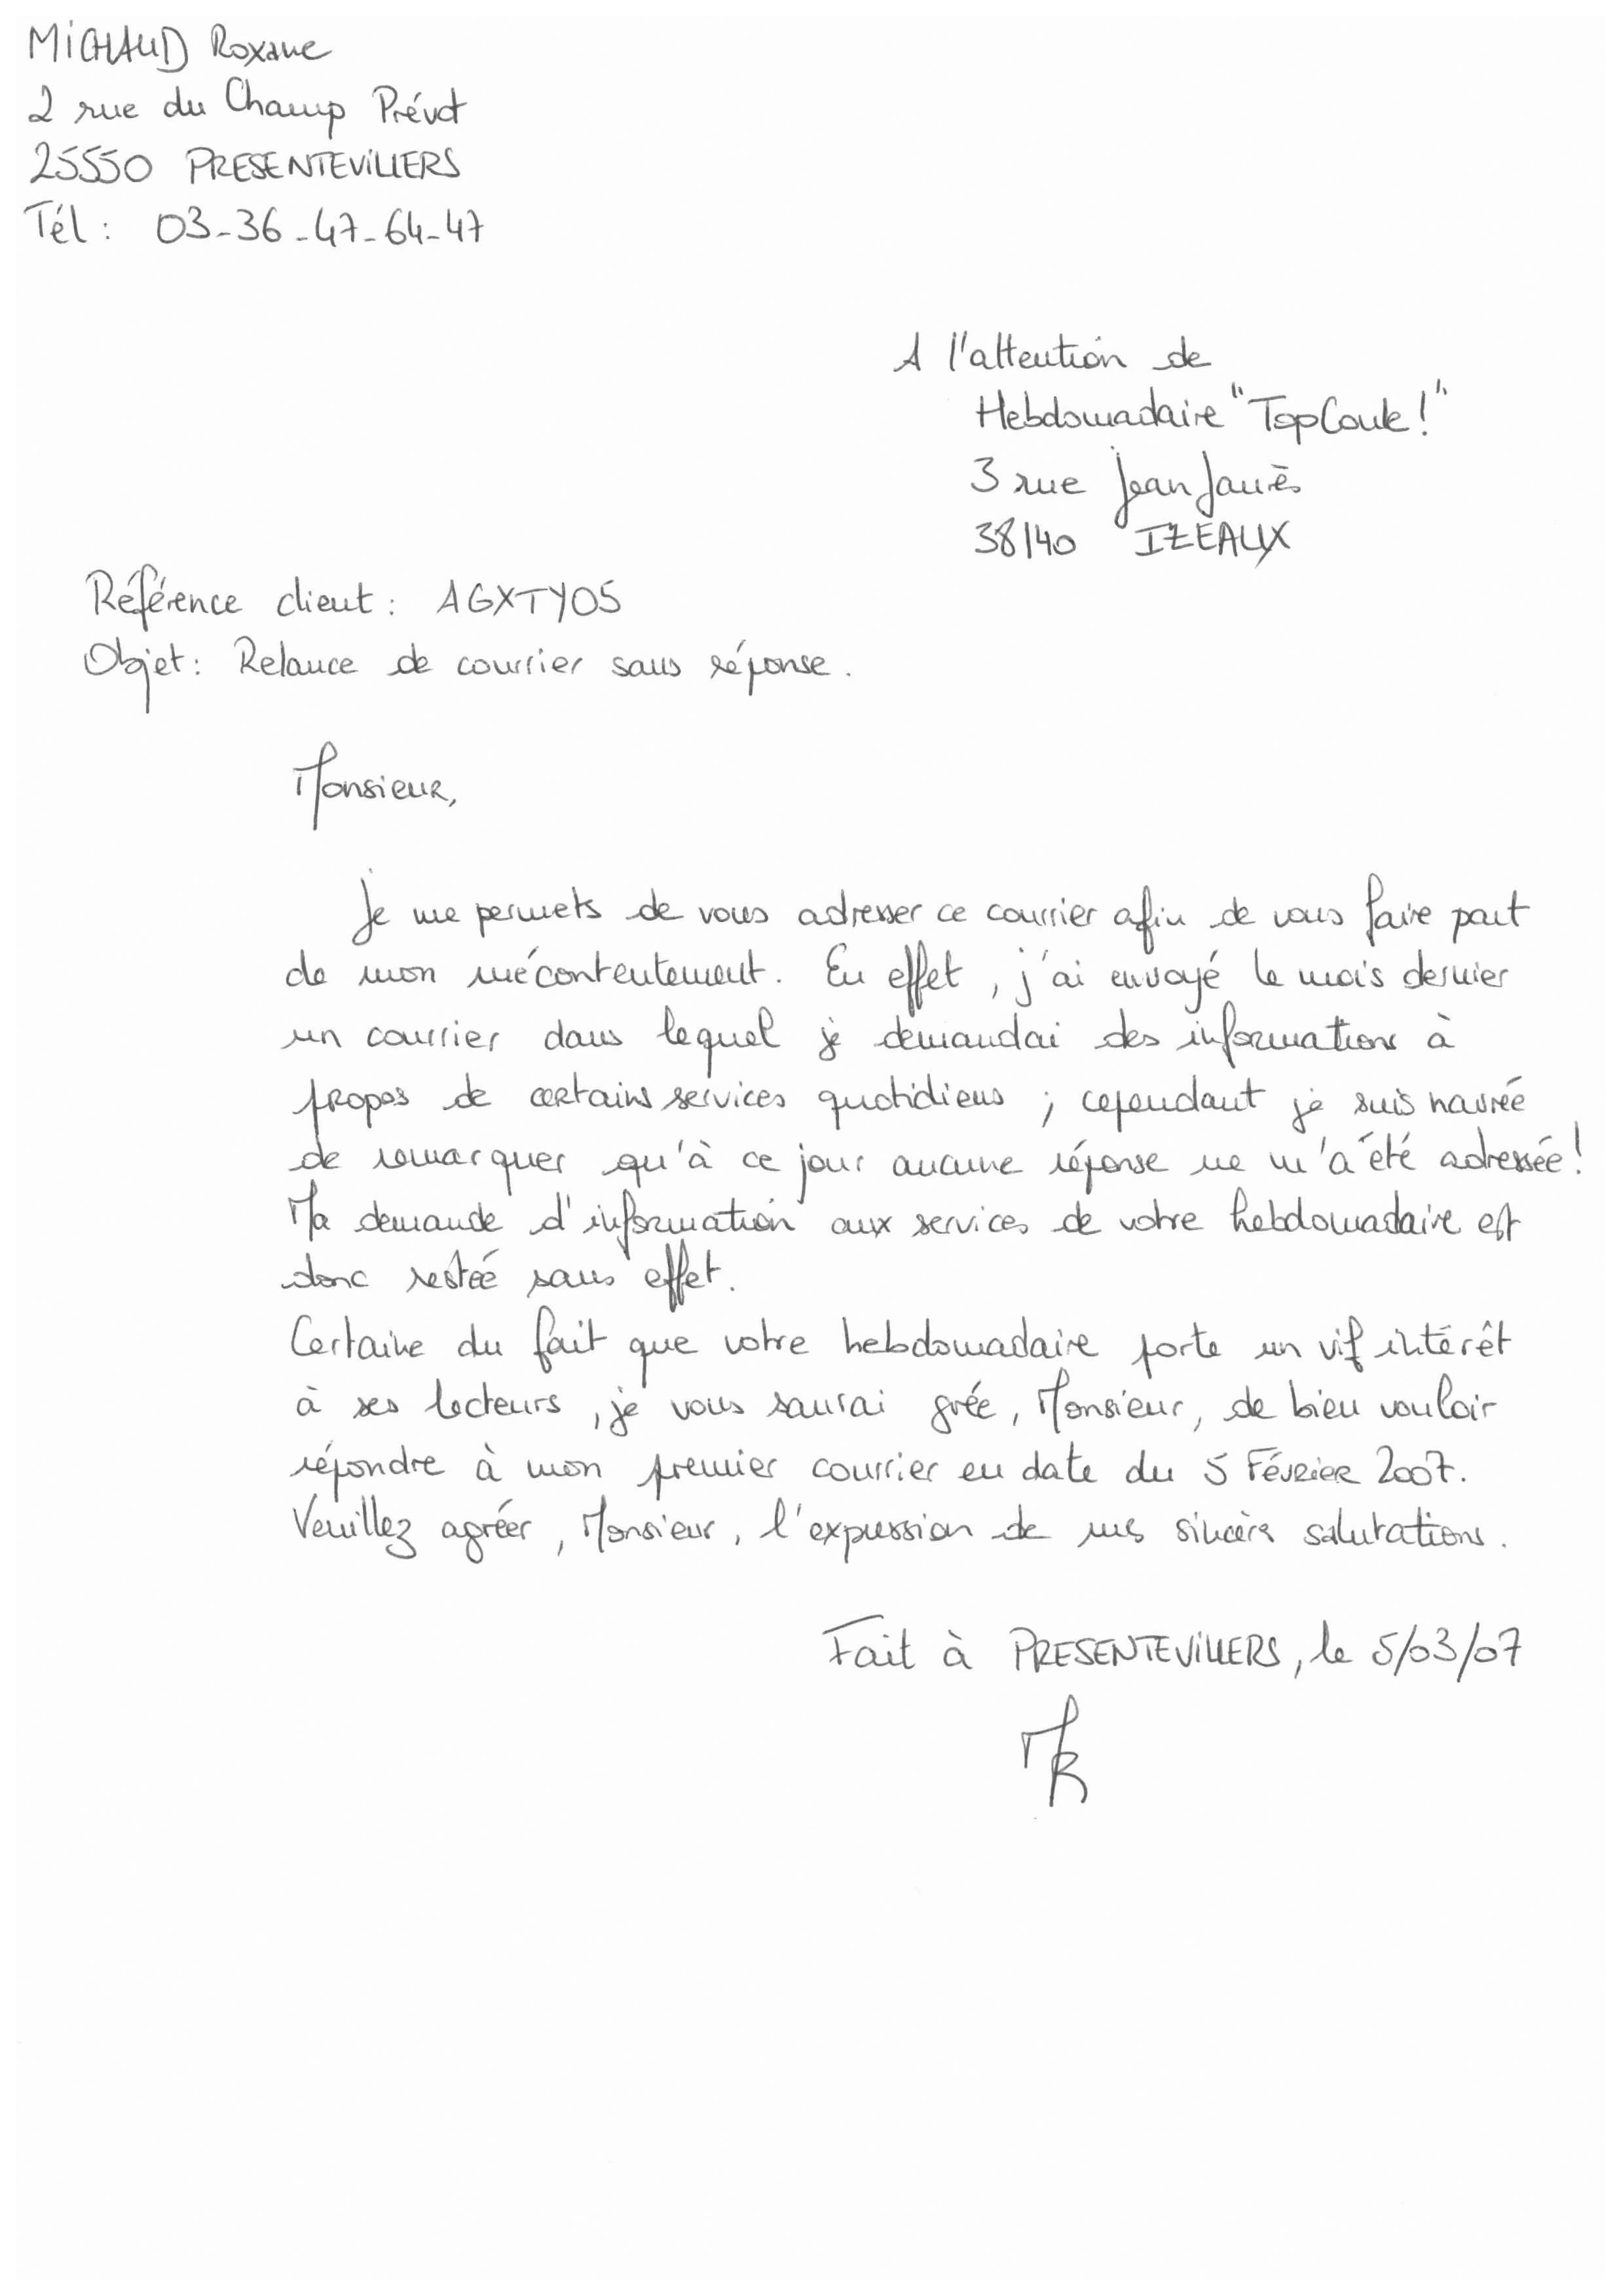 MICHAUD Roxane
2 rue du Champ Prévot
25550 PRESENTEVILLERS
Tél : 03-36-47-64-47
A l'attention de
Hebdomadaire "TopCoule !"
3 rue Jean Jaurès
38140 IZEAUX
Référence client : AGXTY05
Objet : Relance de courrier sans réponse.
Monsieur,
Je me permets de vous adresser ce courrier afin de vous faire part
de mon mécontentement. En effet, j'ai envoyé le mois dernier
un courrier dans lequel je demandai des informations à
propos de certains services quotidiens ; cependant je suis navrée
de remarquer qu'à ce jour aucune réponse ne m'a été adressée !
Ma demande d'information aux services de votre hebdomadaire est
donc restée sans effet.
Certaine du fait que votre hebdomadaire porte un vif intérêt
à ses lecteurs, je vous saurai grée, Monsieur, de bien vouloir
répondre à mon premier courrier en date du 5 Février 2007.
Veuillez agréer, Monsieur, l'expression de mes sincères salutations.
Fait à PRESENTEVILLERS, le 5/03/07
MR